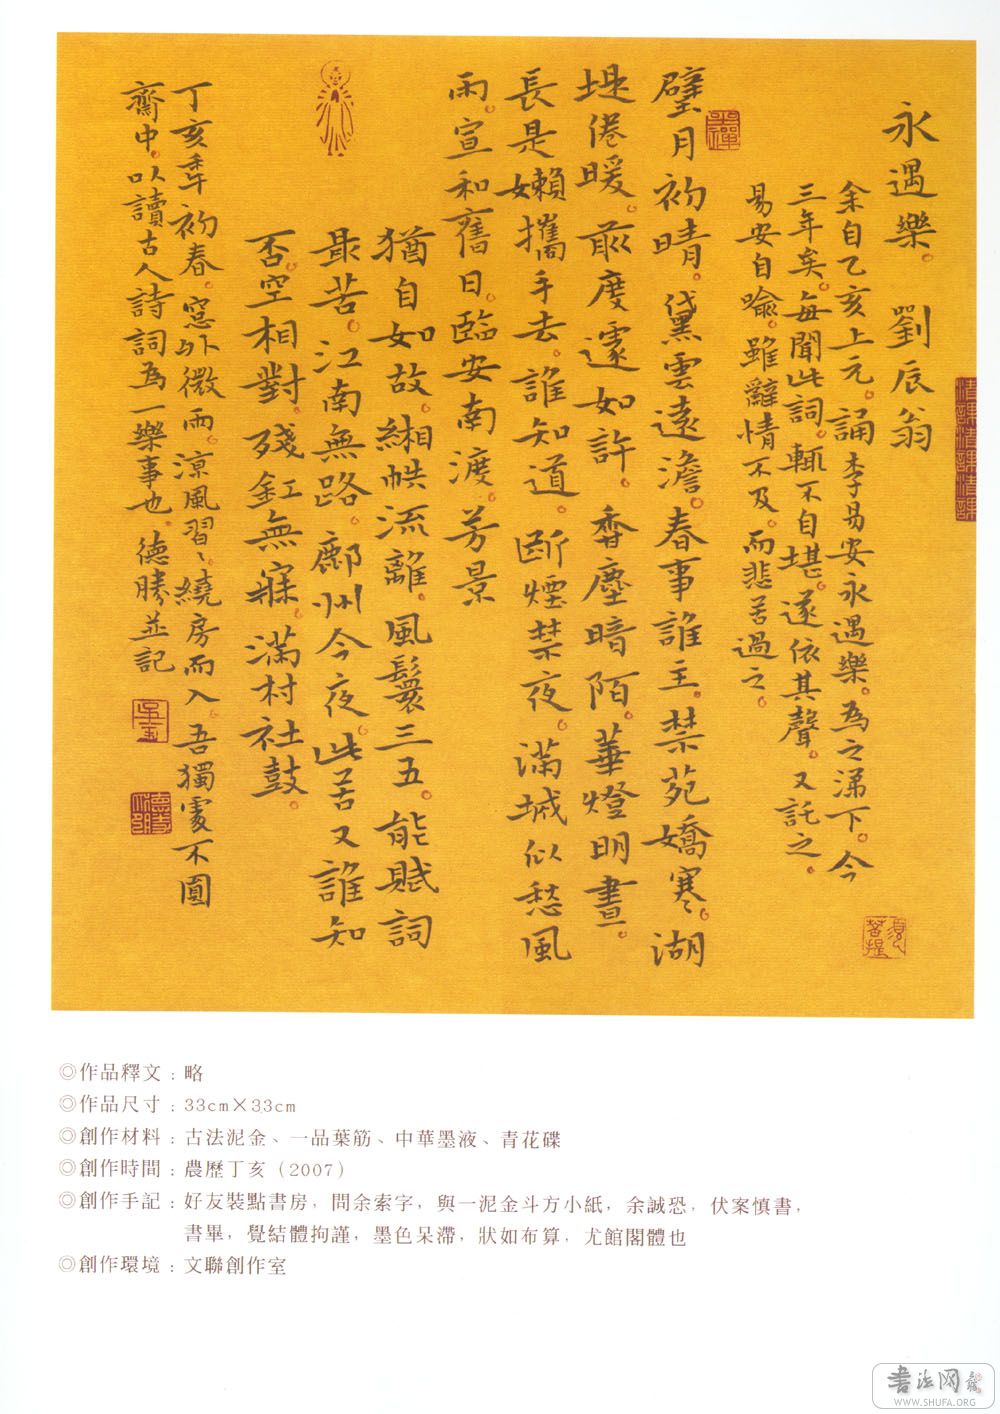 永遇樂。劉辰翁
余自乙亥上元。誦李易安永遇樂。為之涕下。今
三年矣。每聞此詞。輒不自堪。遂依其聲。又託之。
易安自喻。雖辭情不及。而悲苦過之。
璧月初晴。黛雲遠澹。春事誰主。禁苑嬌寒。湖
堤倦暖。前度遽如許。香塵暗陌。華燈明晝。
長是嬾攜手去。誰知道。斷煙禁夜。滿城似愁風
雨。宣和舊日。臨安南渡。芳景
猶自如故。緗帙流離。風鬟三五。能賦詞
最苦。江南無路。鄜州今夜。此苦又誰知
否。空相對。殘釭無寐。滿村社鼓。
丁亥年初春。窓外微雨。涼風習〻。繞房而入 吾獨處不圓
齋中。以讀古人詩詞為一樂事也。德勝並記
◎作品釋文：略
◎作品尺寸：33cm×33cm
◎創作材料：古法泥金、一品葉筋、中華墨液、青花碟
◎創作時間：農歷丁亥（2007）
◎創作手記：好友裝點書房，問余索字，與一泥金斗方小紙，余誠恐，伏案慎書，
書畢，覺結體拘謹，墨色呆滯，狀如布算，尤館閣體也
◎創作環境：文聯創作室
書法网
WWW.SHUFA.ORG